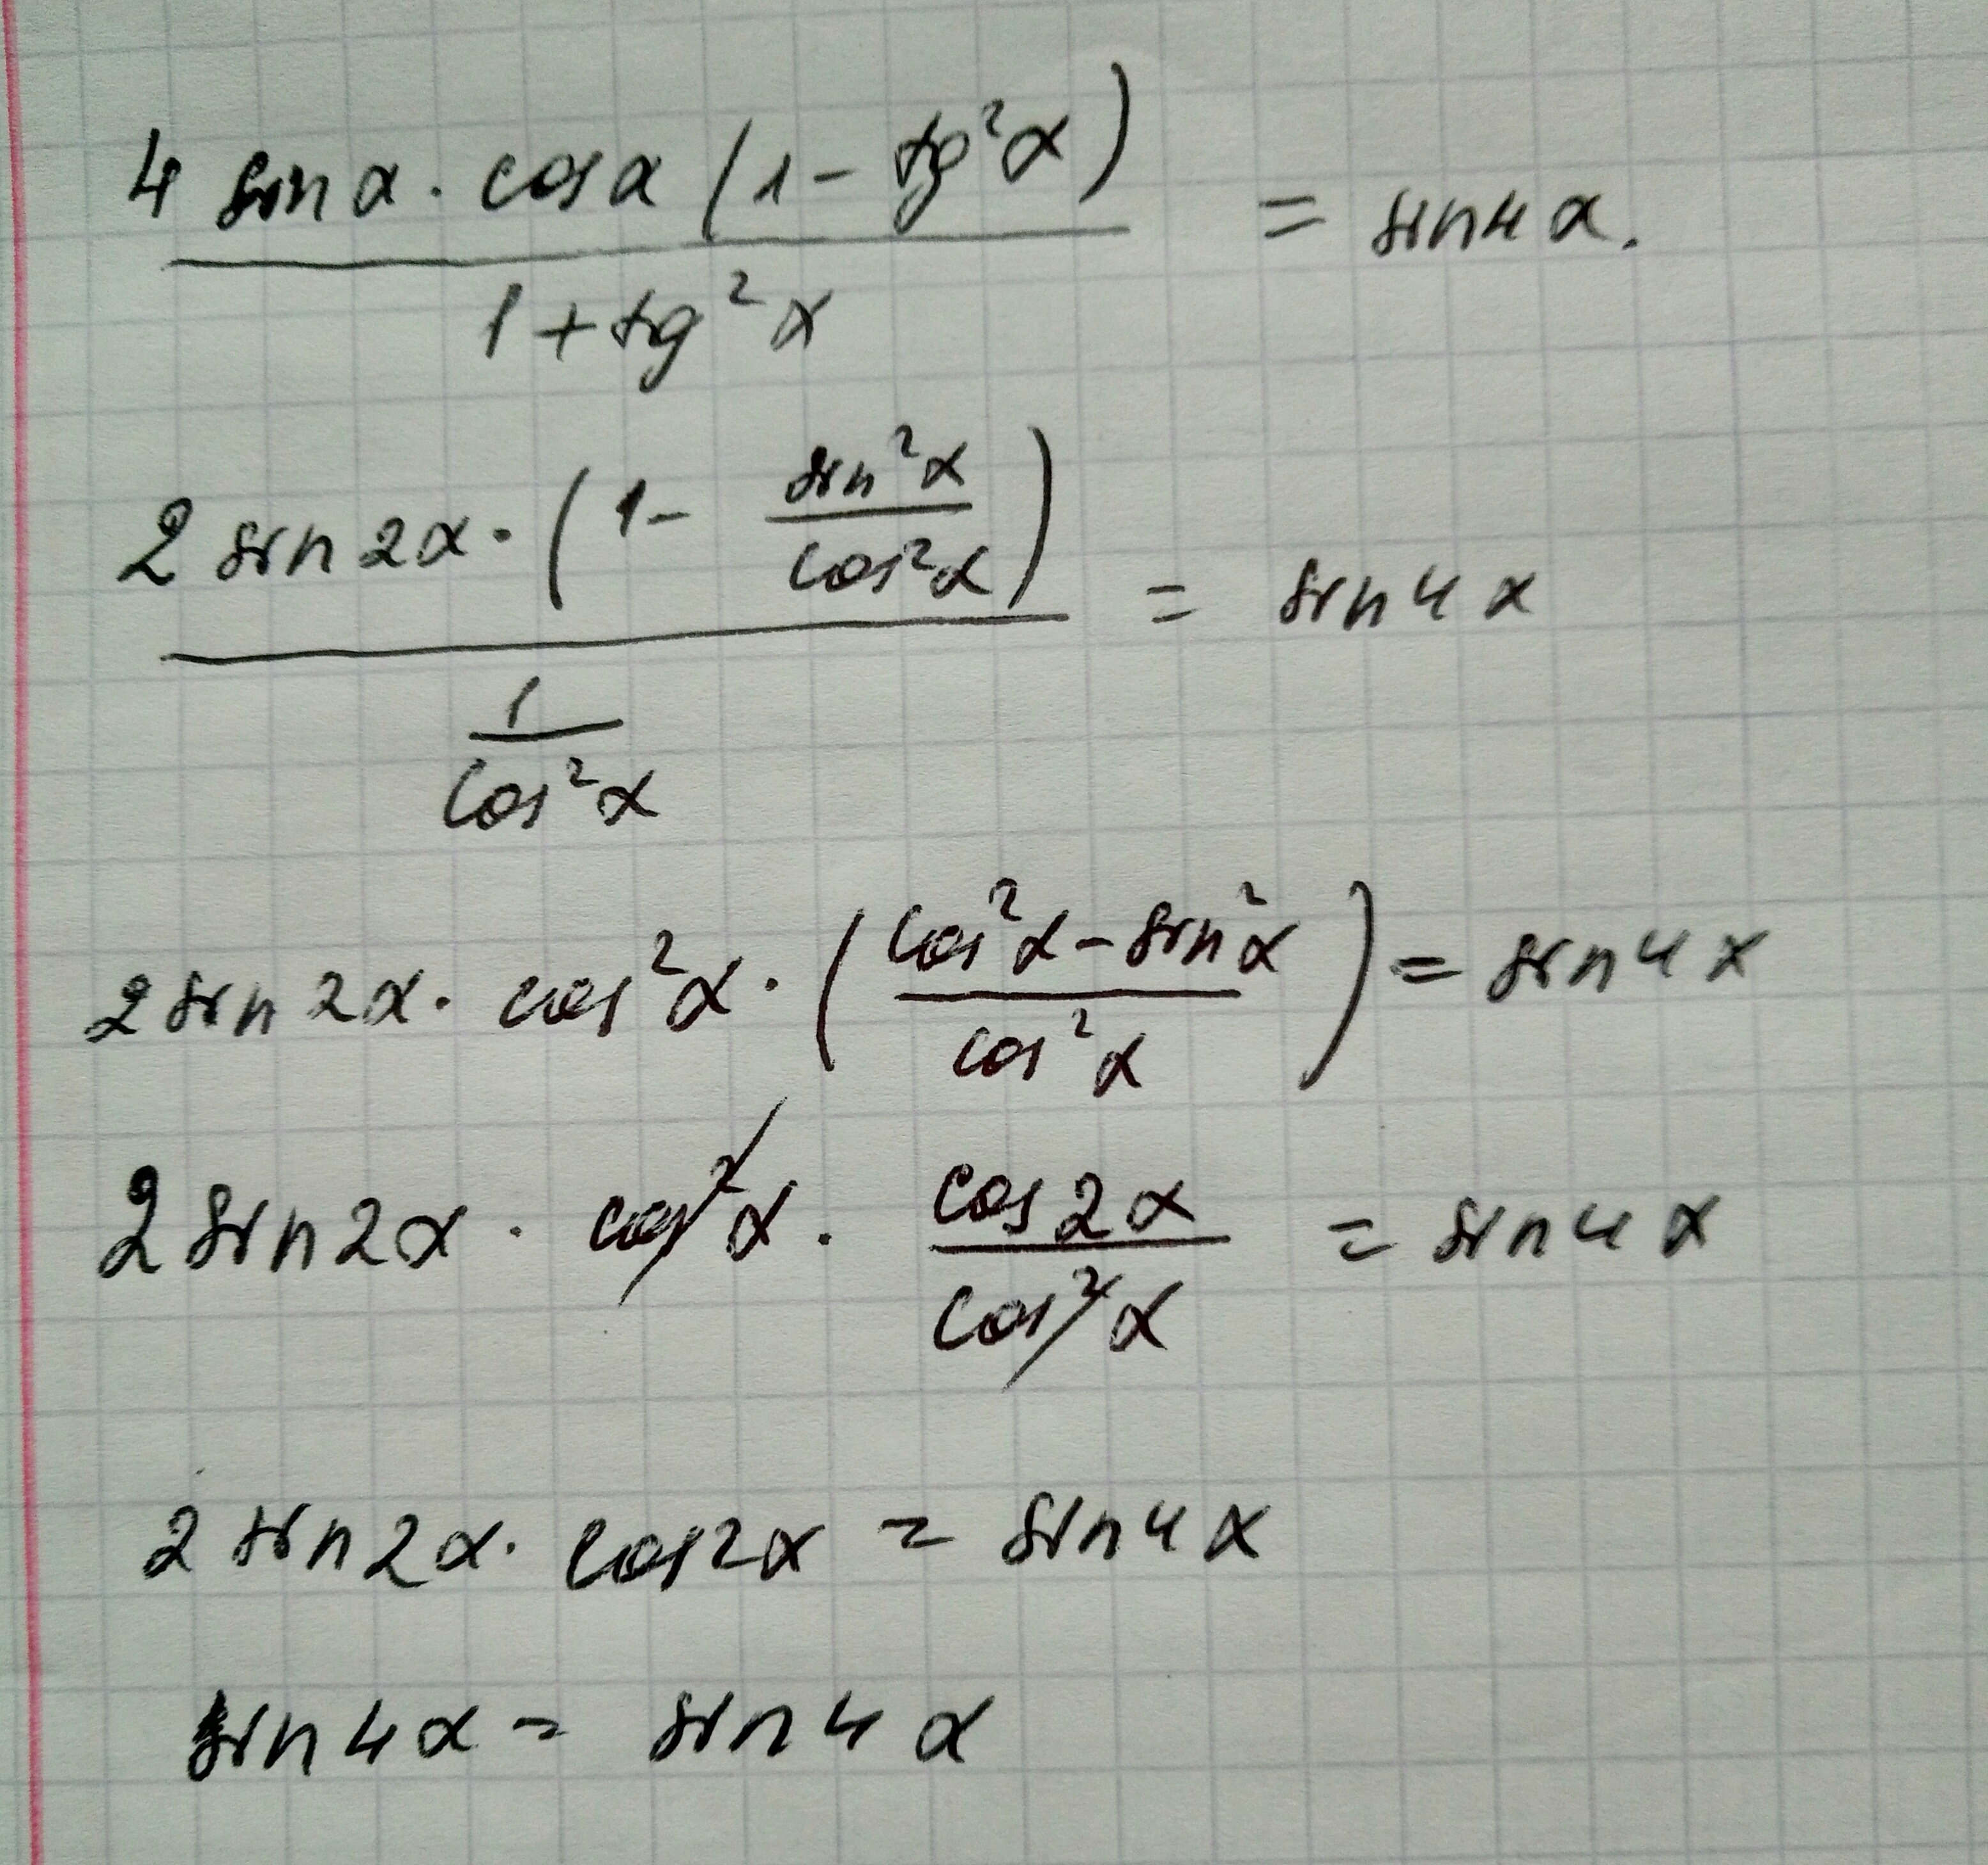 4 sin α · cos α (1 - tg²α) / 1 + tg²α = sin 4α.
2 sin 2α · (1 - sin²α / cos²α) / (1 / cos²α) = sin 4α
2 sin 2α · cos²α · (cos²α - sin²α / cos²α) = sin 4α
2 sin 2α · cos²α · cos 2α / cos²α = sin 4α
2 sin 2α · cos 2α = sin 4α
sin 4α = sin 4α